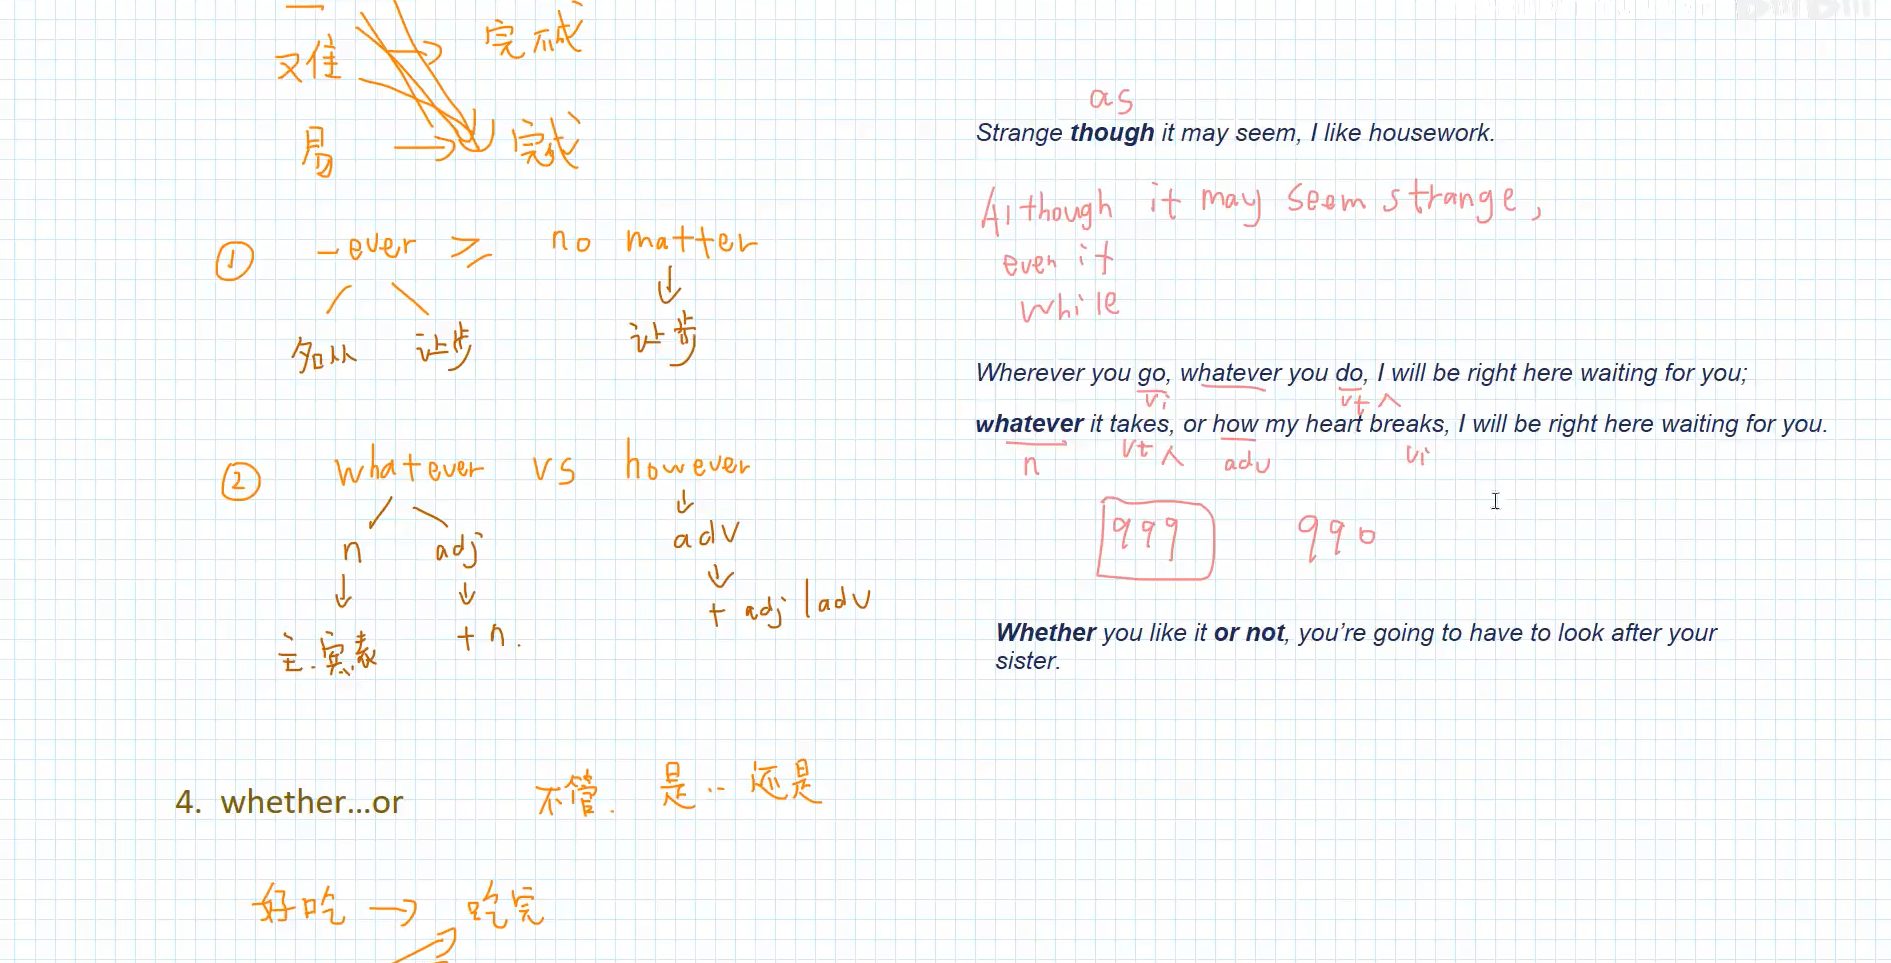 难 完不成
易 完成
① -ever ≥ no matter
名从 让步 让步
② whatever vs however
n adj adv
主.宾.表 + n. + adj | adv
4. whether...or 不管. 是.. 还是
好吃 → 吃完
as
Strange though it may seem, I like housework.
Although it may seem strange,
even if
while
Wherever you go, whatever you do, I will be right here waiting for you;
vi vt
whatever it takes, or how my heart breaks, I will be right here waiting for you.
n vt adv vi
999 990
Whether you like it or not, you’re going to have to look after your
sister.